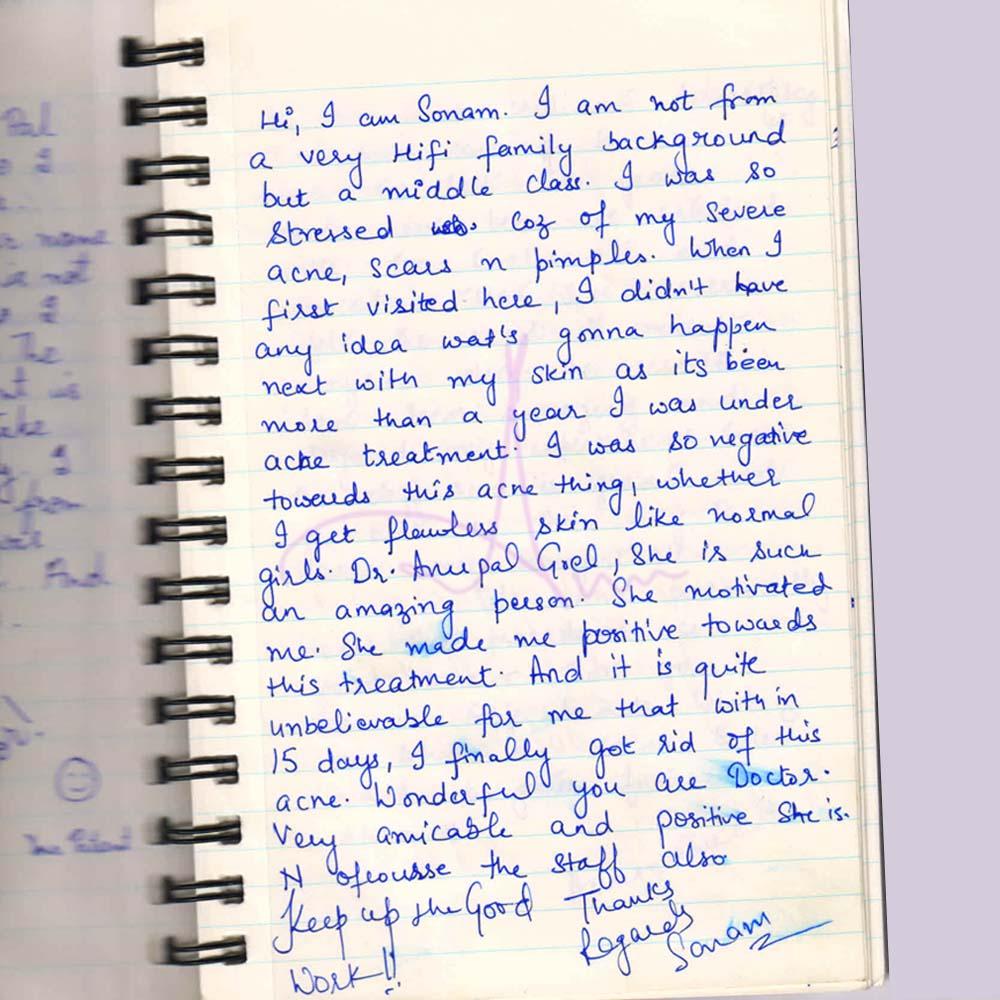 Pal
r name
is not
The
take
from
And
Hi, I am Sonam. I am not from
a very Hifi family background
but a middle class. I was so
stressed coz of my severe
acne, scars n pimples. When I
first visited here, I didn't have
any idea wat's gonna happen
next with my skin as its been
more than a year I was under
acne treatment. I was so negative
towards this acne thing, whether
I get flawless skin like normal
girls. Dr. Anupal Goel, She is such
an amazing person. She motivated
me. She made me positive towards
this treatment. And it is quite
unbelievable for me that with in
15 days, I finally got rid of this
acne. Wonderful you are Doctor.
Very amicable and positive She is.
N ofcousse the staff also
Keep up the Good Thanks
Work!! Regards
Sonam